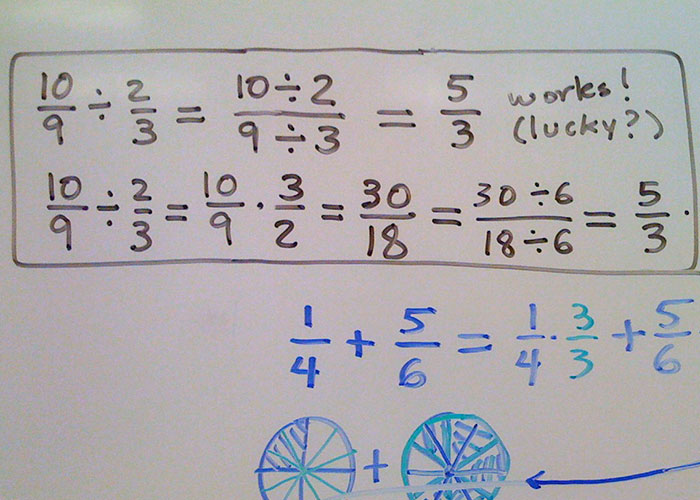 10/9 ÷ 2/3 = (10÷2)/(9÷3) = 5/3 works! (lucky?)
10/9 ÷ 2/3 = 10/9 · 3/2 = 30/18 = (30÷6)/(18÷6) = 5/3.
1/4 + 5/6 = 1/4 · 3/3 + 5/6
+